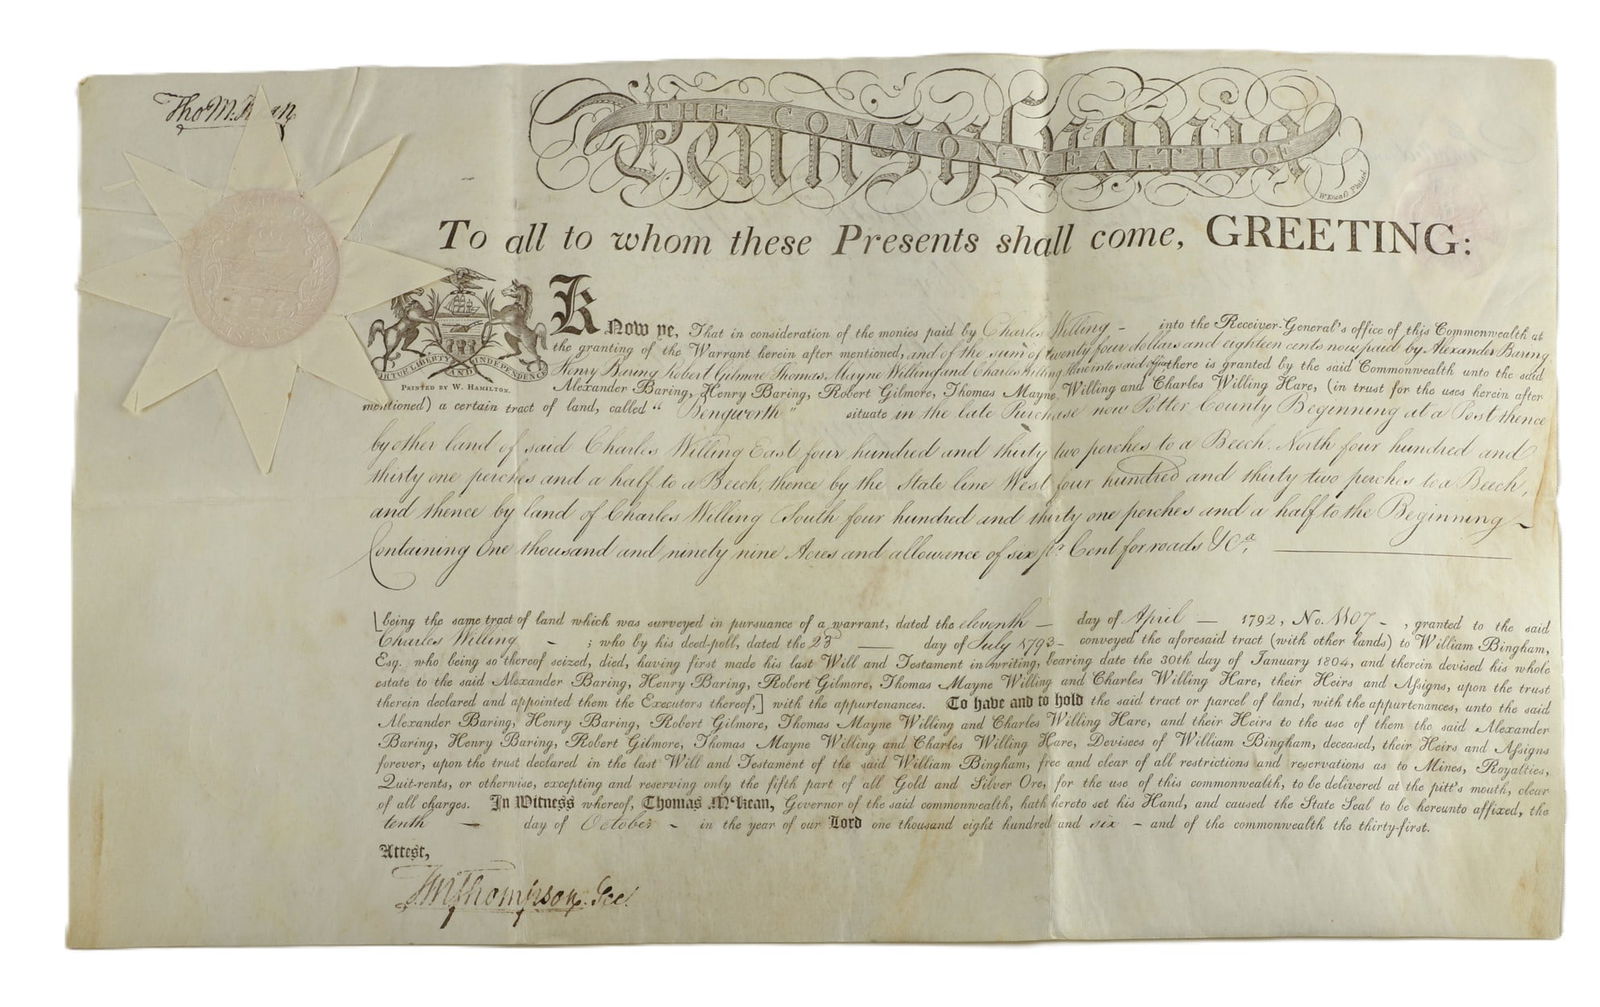 Tho M:Kean
THE COMMONWEALTH OF
Pennsylvania
To all to whom these Presents shall come, GREETING:
Know ye, That in consideration of the monies paid by Charles Willing - into the Receiver-General's office of this Commonwealth at
the granting of the Warrant herein after mentioned, and of the sum of twenty four dollars and eighteen cents now paid by Alexander Baring
Henry Baring Robert Gilmore Thomas Mayne Willing and Charles Willing Hare into said office there is granted by the said Commonwealth unto the said
Alexander Baring, Henry Baring, Robert Gilmore, Thomas Mayne Willing and Charles Willing Hare, (in trust for the uses herein after
mentioned) a certain tract of land, called "Bengworth" situate in the late Purchase now Potter County Beginning at a Post thence
VIRTUE LIBERTY AND INDEPENDENCE
PRINTED BY W. HAMILTON.
by other land of said Charles Willing East four hundred and thirty two perches to a Beech. North four hundred and
thirty one perches and a half to a Beech, thence by the State line West four hundred and thirty two perches to a Beech,
and thence by land of Charles Willing South four hundred and thirty one perches and a half to the Beginning
Containing One thousand and ninety nine Acres and allowance of six pr. Cent for roads &Ca.
[being the same tract of land which was surveyed in pursuance of a warrant, dated the eleventh — day of April — 1792, No. 1107 -, granted to the said
Charles Willing - ; who by his deed-poll, dated the 23d — day of July 1793 - conveyed the aforesaid tract (with other lands) to William Bingham,
Esq. who being so thereof seized, died, having first made his last Will and Testament in writing, bearing date the 30th day of January 1804, and therein devised his whole
estate to the said Alexander Baring, Henry Baring, Robert Gilmore, Thomas Mayne Willing and Charles Willing Hare, their Heirs and Assigns, upon the trust
therein declared and appointed them the Executors thereof,] with the appurtenances. To have and to hold the said tract or parcel of land, with the appurtenances, unto the said
Alexander Baring, Henry Baring, Robert Gilmore, Thomas Mayne Willing and Charles Willing Hare, and their Heirs to the use of them the said Alexander
Baring, Henry Baring, Robert Gilmore, Thomas Mayne Willing and Charles Willing Hare, Devisees of William Bingham, deceased, their Heirs and Assigns
forever, upon the trust declared in the last Will and Testament of the said William Bingham, free and clear of all restrictions and reservations as to Mines, Royalties,
Quit-rents, or otherwise, excepting and reserving only the fifth part of all Gold and Silver Ore, for the use of this commonwealth, to be delivered at the pitt's mouth, clear
of all charges. In Witness whereof, Thomas M'Kean, Governor of the said commonwealth, hath hereto set his Hand, and caused the State Seal to be hereunto affixed, the
tenth — day of October - in the year of our Lord one thousand eight hundred and six - and of the commonwealth the thirty-first.
Attest,
Thompson. Sec.